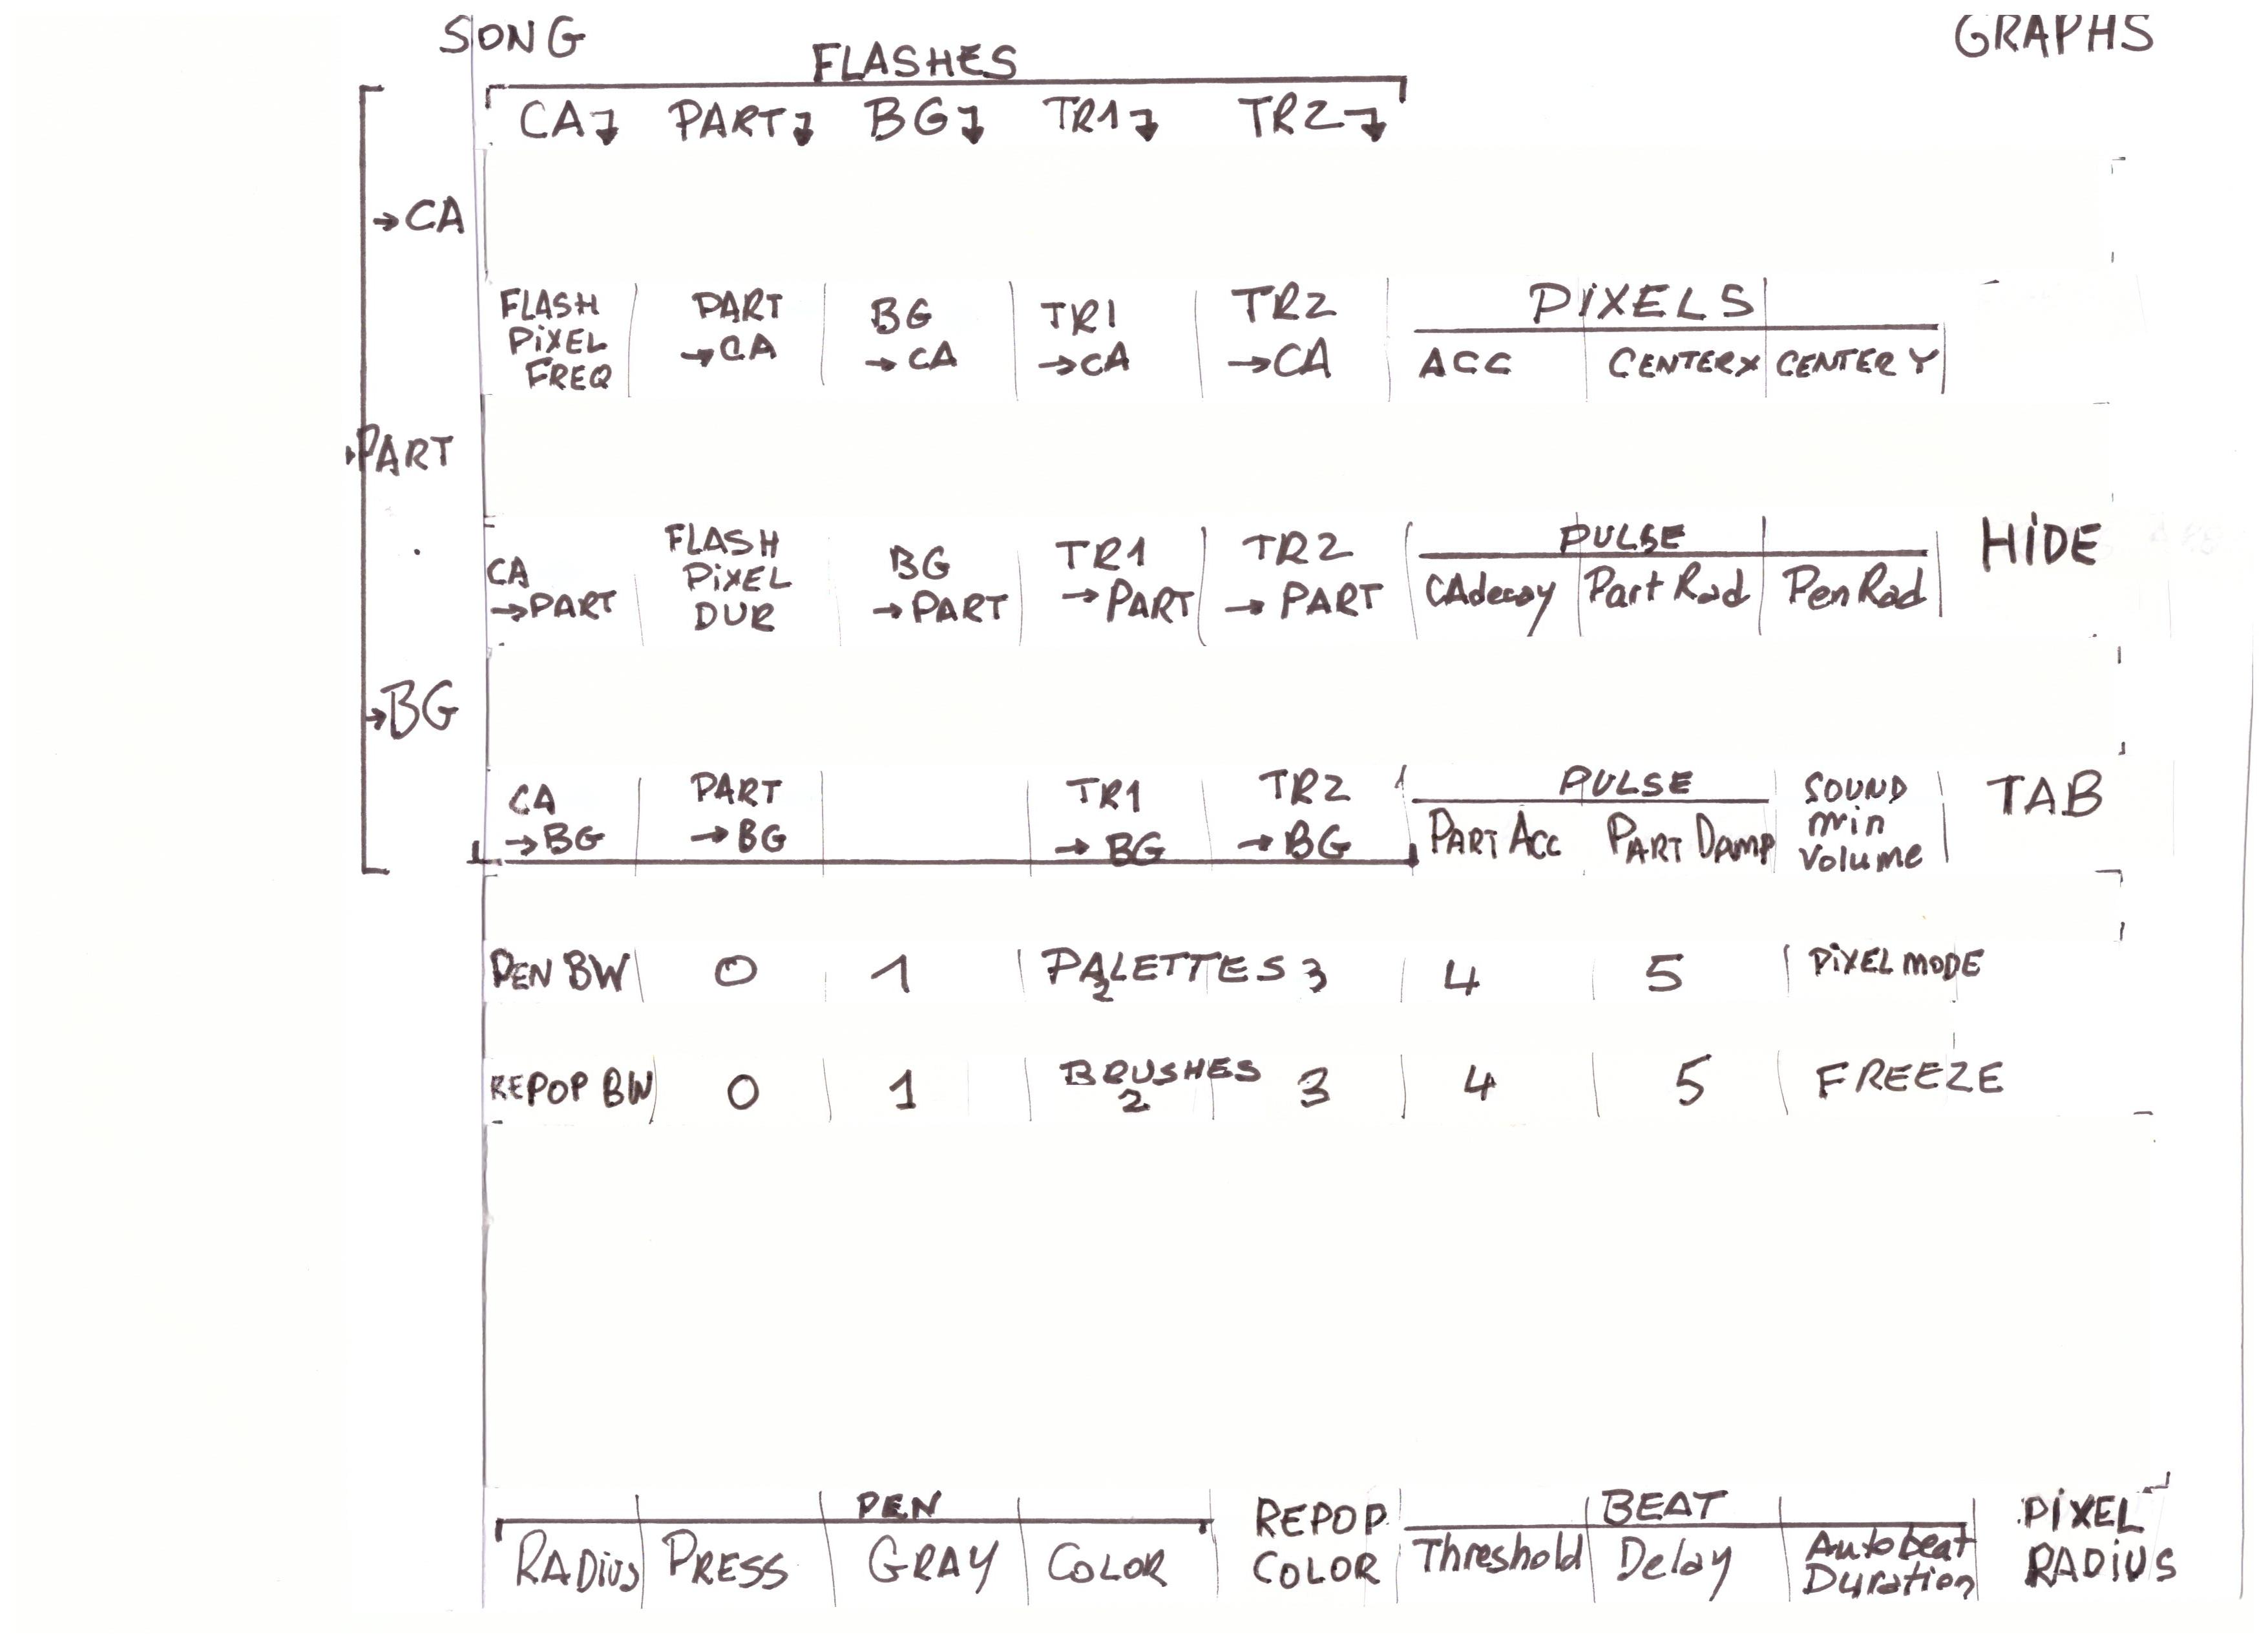 SONG GRAPHS
FLASHES
CA PART BG TR1 TR2
→CA
FLASH PIXEL FREQ
PART →CA
BG →CA
TR1 →CA
TR2 →CA
PIXELS
ACC CENTERX CENTERY
PART
CA →PART
FLASH PIXEL DUR
BG →PART
TR1 →PART
TR2 →PART
PULSE
CAdecay Part Rad Pen Rad
HIDE
→BG
CA →BG
PART →BG
TR1 →BG
TR2 →BG
PULSE
PART Acc PART Damp
SOUND min volume
TAB
PEN BW 0 1 PALETTES 2 3 4 5 PIXEL MODE
REPOP BW 0 1 BRUSHES 2 3 4 5 FREEZE
PEN
RADIUS PRESS GRAY COLOR
REPOP COLOR
BEAT
Threshold Delay Autobeat Duration
PIXEL RADIUS